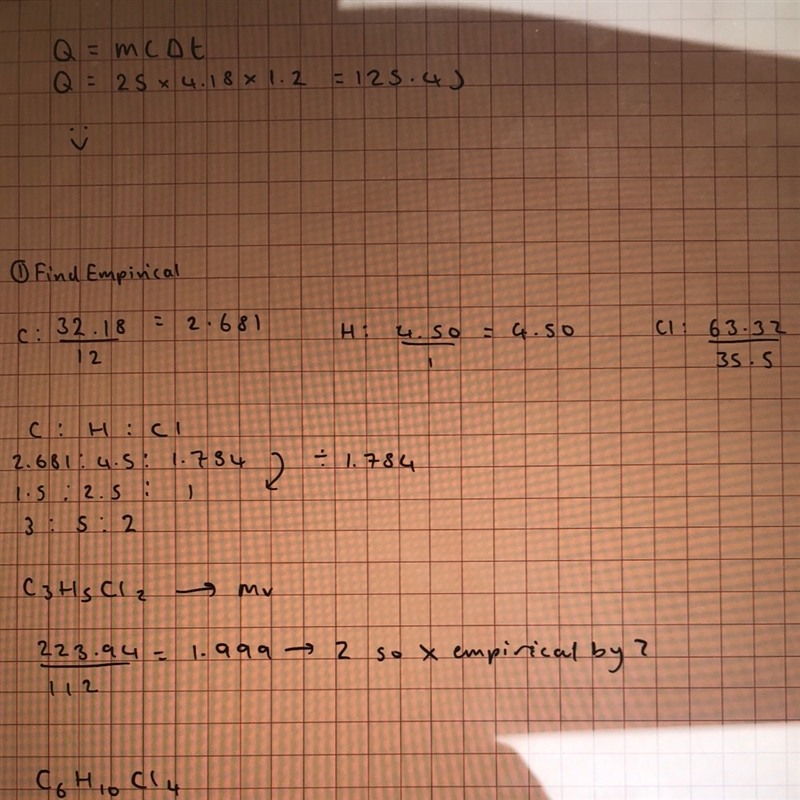 Q = mCΔt
Q = 25 x 4.18 x 1.2 = 125.4J
① Find Empirical
C: 32.18/12 = 2.681 H: 4.50/1 = 4.50 Cl: 63.32/35.5
C : H : Cl
2.681 : 4.5 : 1.784 ÷ 1.784
1.5 : 2.5 : 1
3 : 5 : 2
C₃H₅Cl₂ → Mr
223.94/112 = 1.999 → 2 so x empirical by 2
C₆H₁₀Cl₄